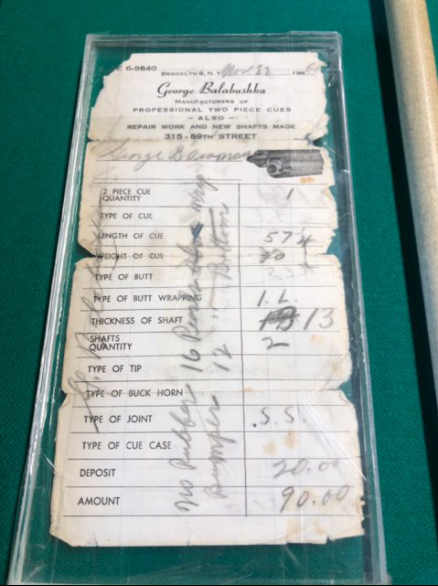 6-9840
BROOKLYN 9, N.Y. Nov 22 196
George Balabushka
MANUFACTURERS OF
PROFESSIONAL TWO PIECE CUES
— ALSO —
REPAIR WORK AND NEW SHAFTS MADE
315 - 69TH STREET
George
2 PIECE CUE
QUANTITY 1
TYPE OF CUE
LENGTH OF CUE 57
WEIGHT OF CUE
TYPE OF BUTT
TYPE OF BUTT WRAPPING I. L.
THICKNESS OF SHAFT 13
SHAFTS
QUANTITY 2
TYPE OF TIP
TYPE OF BUCK HORN
TYPE OF JOINT S.S.
TYPE OF CUE CASE
DEPOSIT 20.00
AMOUNT 90.00
no Rubber 16
Bumper 12 Bottom